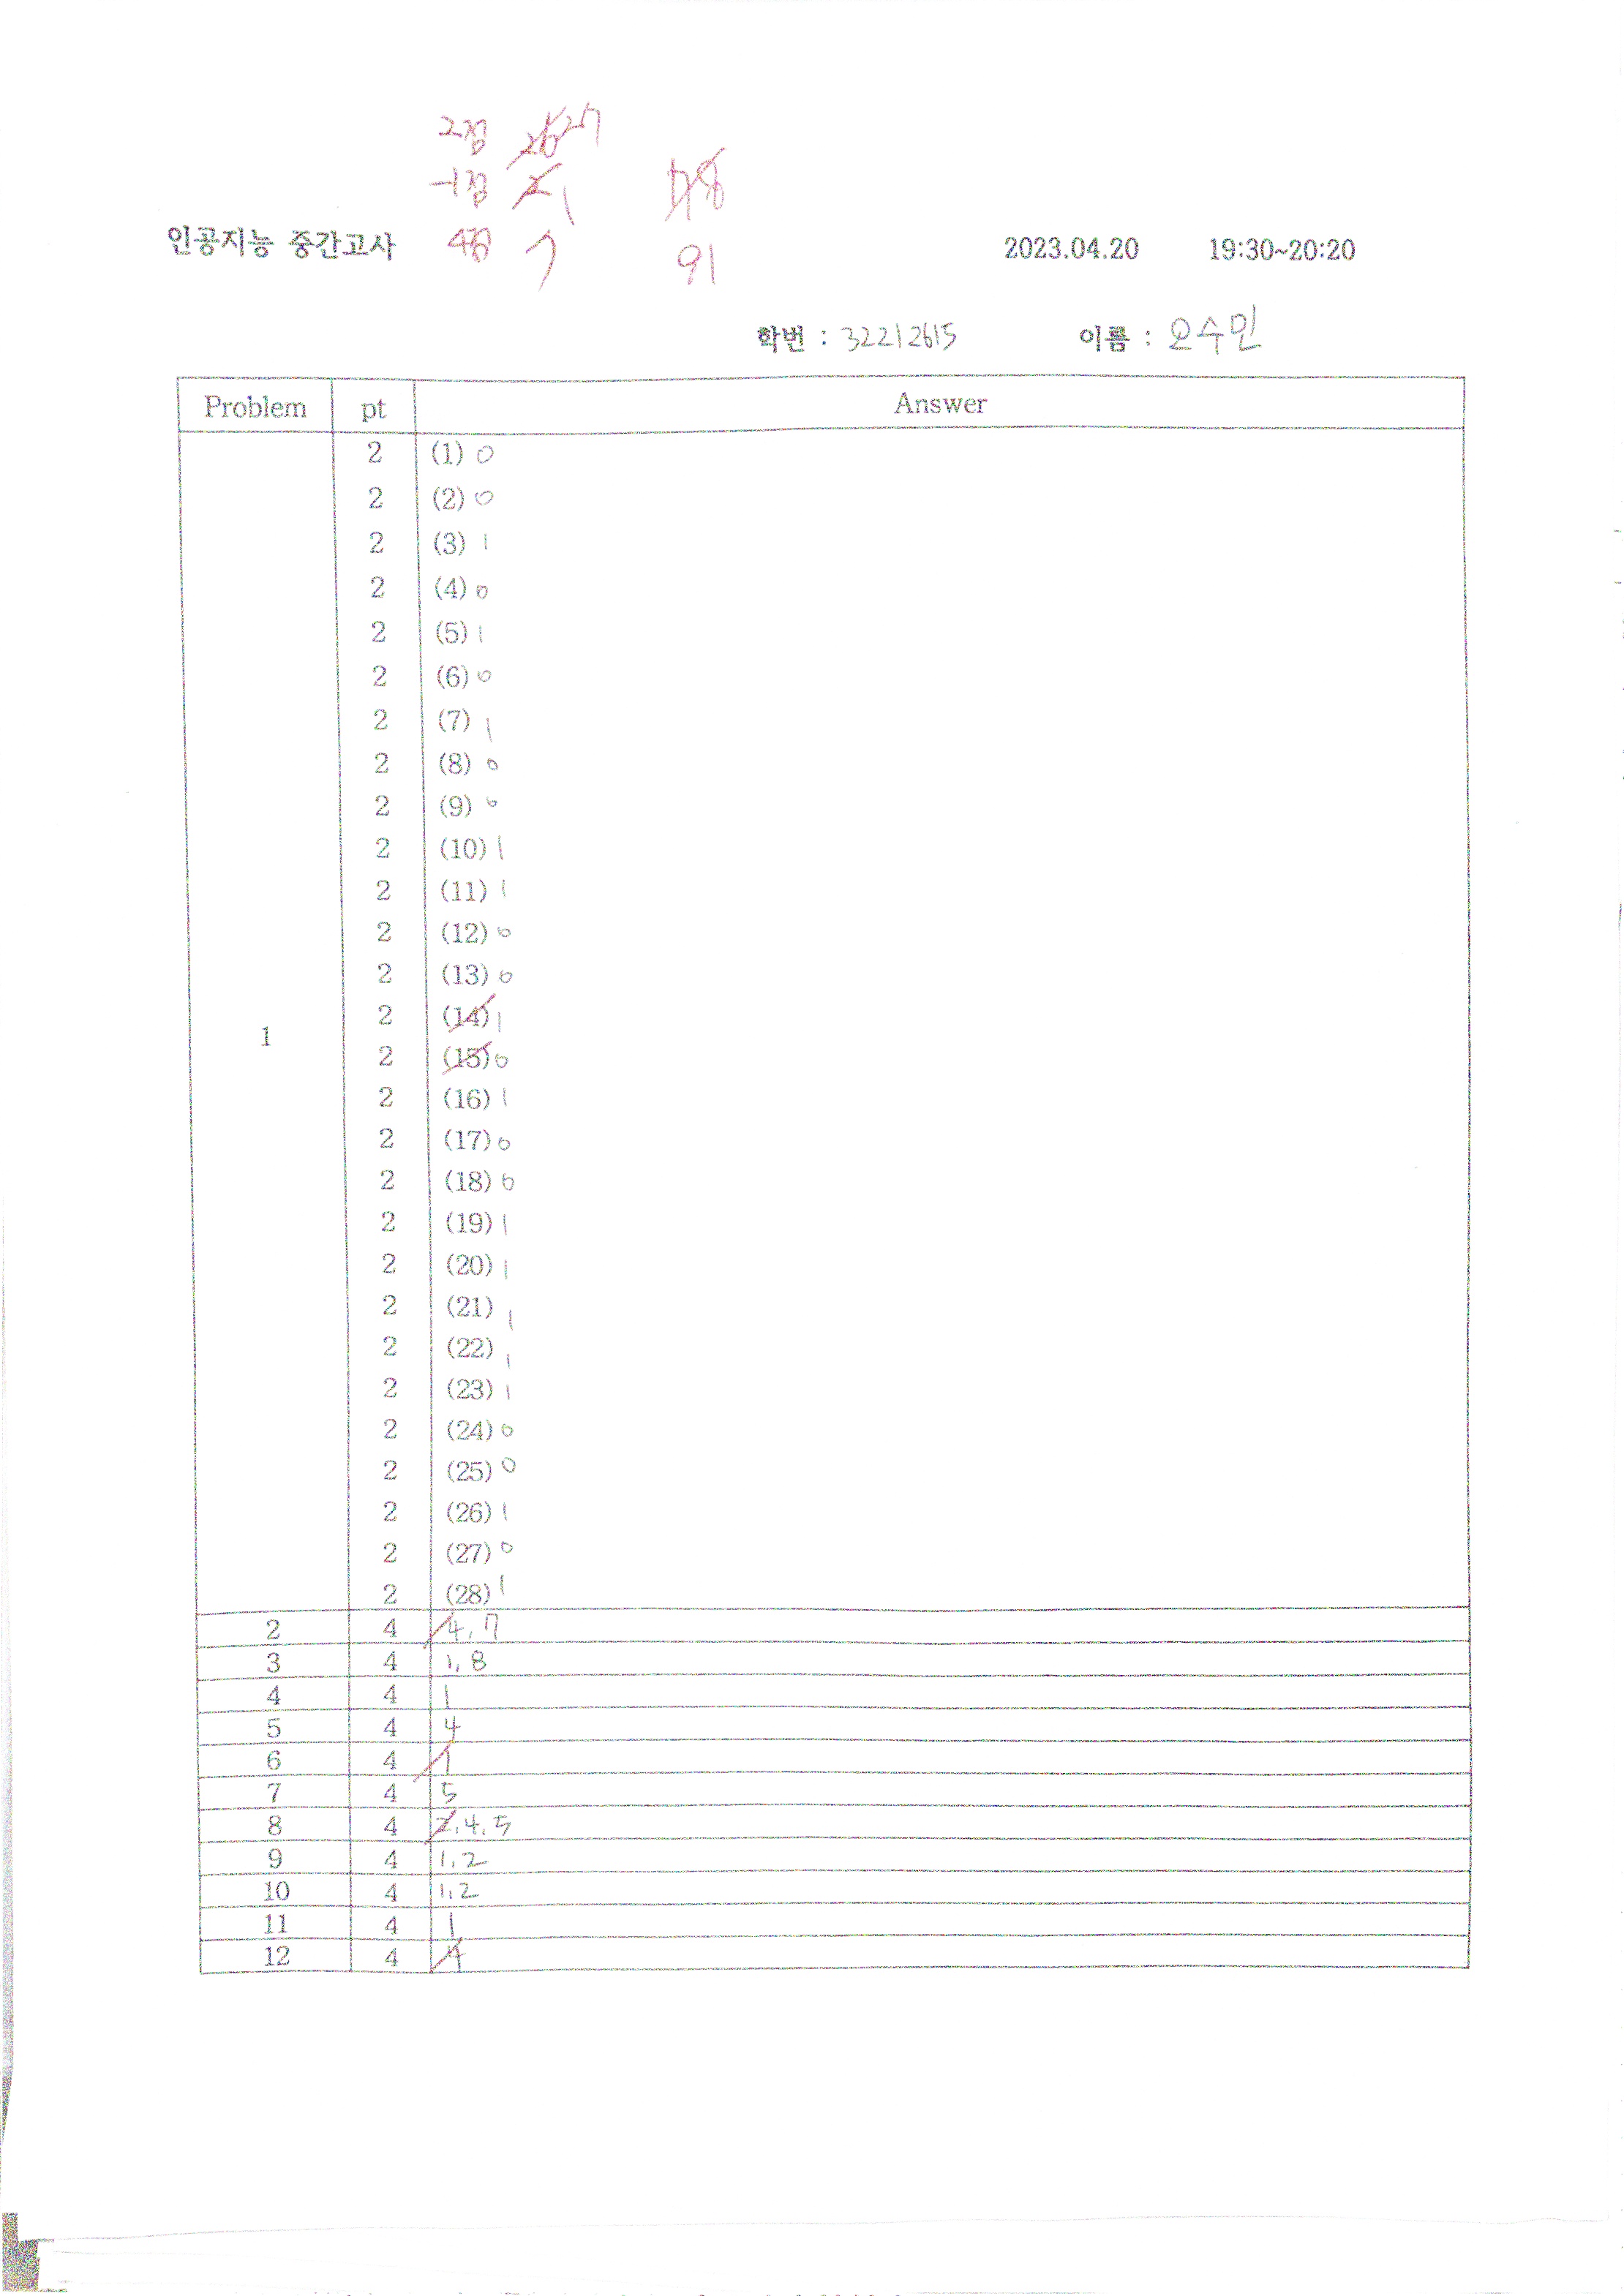 2점 26 27
-1점 2 1
인공지능 중간고사 4점 7 91 2023.04.20 19:30~20:20
학번 : 32212615 이름 : 오수민
Problem pt Answer
2 (1) 0
2 (2) 0
2 (3) 1
2 (4) 0
2 (5) 1
2 (6) 0
2 (7) 1
2 (8) 0
2 (9) 0
2 (10) 1
2 (11) 1
2 (12) 0
2 (13) 0
2 (14) 1
1
2 (15) 0
2 (16) 1
2 (17) 0
2 (18) 0
2 (19) 1
2 (20) 1
2 (21) 1
2 (22) 1
2 (23) 1
2 (24) 0
2 (25) 0
2 (26) 1
2 (27) 0
2 (28) 1
2 4 4, 7
3 4 1, 8
4 4 1
5 4 4
6 4 1
7 4 5
8 4 2, 4, 5
9 4 1, 2
10 4 1, 2
11 4 1
12 4 4